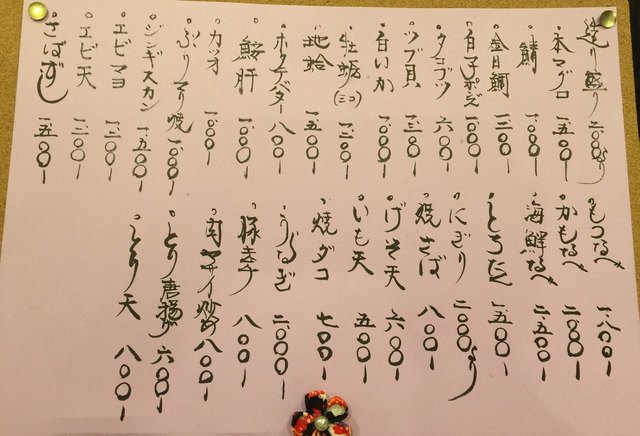 造り盛り 二〇〇〇より
本マグロ 一.五〇〇
鯖 一.〇〇〇
金目鯛 一.三〇〇
白子ポン酢 一.〇〇〇
タコブツ 六〇〇
ツブ貝 一.三〇〇
白いか 一.〇〇〇
牡蛎(三コ) 一.二〇〇
地蛤 一.五〇〇
ホタテバター 八〇〇
鮟肝 一.〇〇〇
カツオ 一.〇〇〇
ぶりてり焼 一.〇〇〇
ジンギスカン 一.五〇〇
エビマヨ 一.二〇〇
エビ天 一.二〇〇
さばずし 一.五〇〇
もつなべ 一.八〇〇
かもなべ 二.〇〇〇
海鮮なべ 二.五〇〇
一.五〇〇
にぎり 二〇〇〇より
焼さば 八〇〇
げそ天 六〇〇
いも天 五〇〇
焼ダコ 七〇〇
うなぎ 二.〇〇〇
豚キムチ 八〇〇
肉ヤサイ炒め 八〇〇
とり唐揚げ 六〇〇
とり天 八〇〇